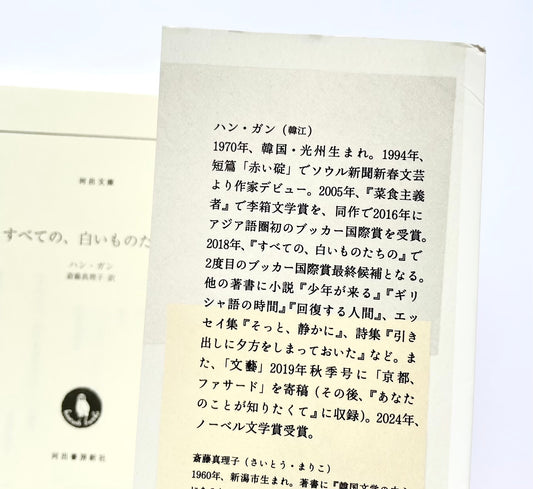 河出文庫
すべての、白いものた
ハン・ガン
斎藤真理子 訳
河出書房新社
ハン・ガン（韓江）
1970年、韓国・光州生まれ。1994年、
短篇「赤い碇」でソウル新聞新春文芸
より作家デビュー。2005年、『菜食主義
者』で李箱文学賞を、同作で2016年に
アジア語圏初のブッカー国際賞を受賞。
2018年、『すべての、白いものたちの』で
2度目のブッカー国際賞最終候補となる。
他の著書に小説『少年が来る』『ギリ
シャ語の時間』『回復する人間』、エッ
セイ集『そっと、静かに』、詩集『引き
出しに夕方をしまっておいた』など。ま
た、「文藝」2019年秋季号に「京都、
ファサード」を寄稿（その後、『あなた
のことが知りたくて』に収録）。2024年、
ノーベル文学賞受賞。
斎藤真理子（さいとう・まりこ）
1960年、新潟市生まれ。著書に『韓国文学の中心